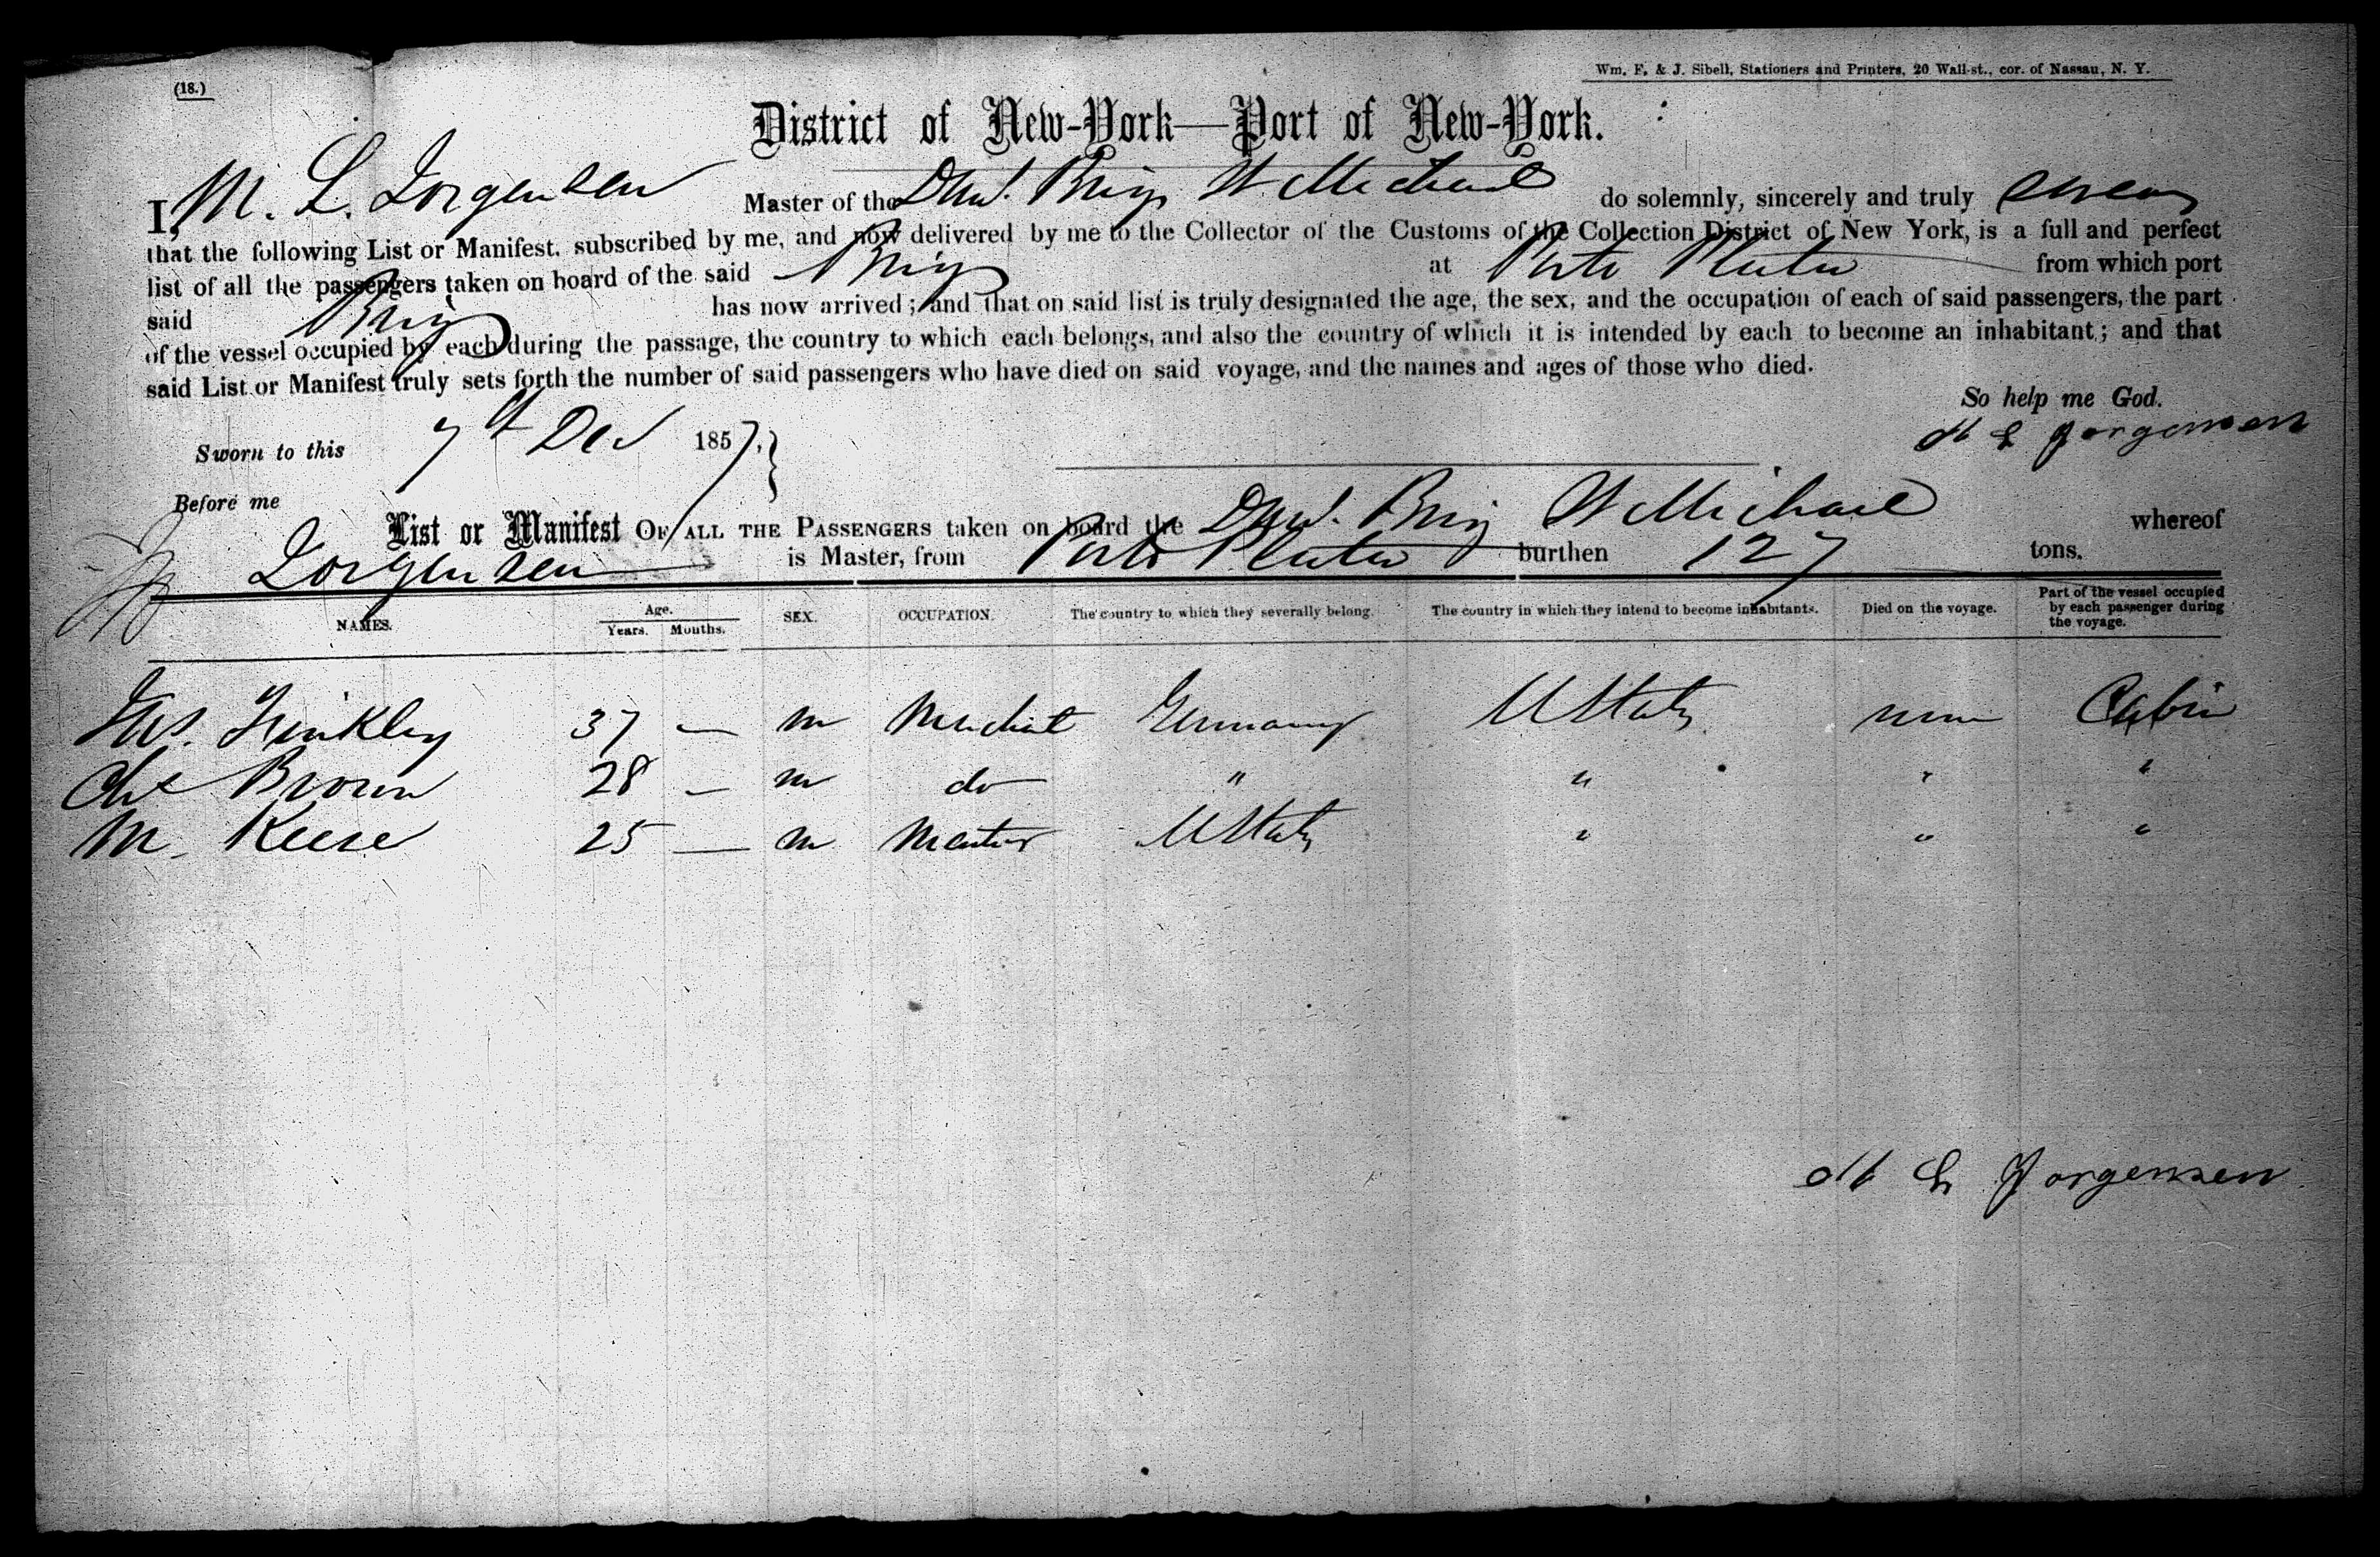 (18.)
Wm. F. & J. Sibell, Stationers and Printers, 20 Wall-st., cor. of Nassau, N. Y.
District of New-York—Port of New-York.
I, M. L. Jorgensen Master of the Brig St Michael do solemnly, sincerely and truly swear
that the following List or Manifest, subscribed by me, and now delivered by me to the Collector of the Customs of the Collection District of New York, is a full and perfect
list of all the passengers taken on board of the said Brig at Porto Plata from which port
said Brig has now arrived; and that on said list is truly designated the age, the sex, and the occupation of each of said passengers, the part
of the vessel occupied by each during the passage, the country to which each belongs, and also the country of which it is intended by each to become an inhabitant; and that
said List or Manifest truly sets forth the number of said passengers who have died on said voyage, and the names and ages of those who died.
So help me God.
Sworn to this 7th Dec 1857.
M L Jorgensen
Before me
List or Manifest OF ALL THE PASSENGERS taken on board the Brig St Michael whereof
Jorgensen is Master, from Porto Plata burthen 127 tons.
NAMES. Age. Years. Months. SEX. OCCUPATION. The country to which they severally belong. The country in which they intend to become inhabitants. Died on the voyage. Part of the vessel occupied by each passenger during the voyage.
37 — m Germany U States none Cabin
Brown 28 — m do " " " "
M. Keese 25 — m U States " " "
M L Jorgensen